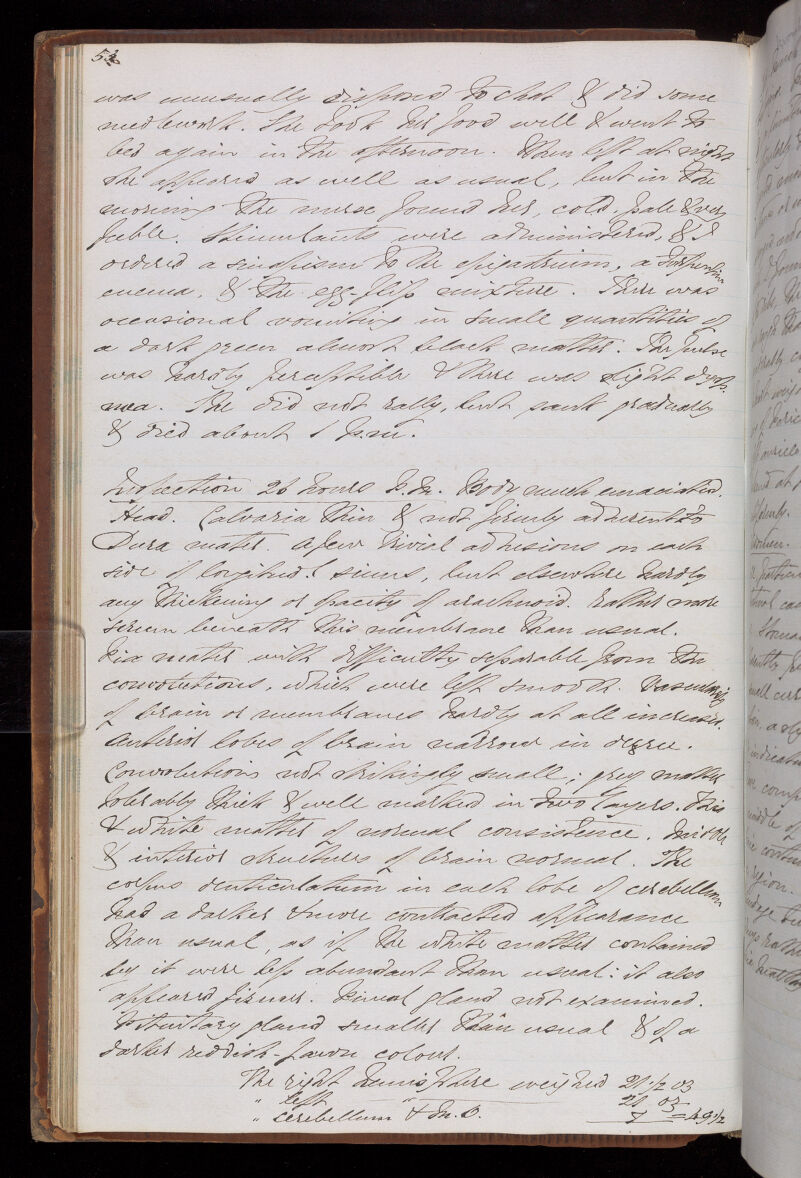 was unusually disposed to chat & did some
needlework. She took her food well & went to
bed again in the afternoon. When left at night
she appeared as well as usual, but in the
morning the nurse found her, cold, pale & very
feeble. Stimulants were administered, & I
ordered a sinapism to the epigastrium, a turpentine
enema, & the egg-flip mixture. There was
occasional vomiting in small quantities of
a dark green almost black matter. The pulse
was hardly perceptible & there was slight dysp-
nœa. She did not rally, but sank gradually
& died about 1 p.m.
Inspection 26 hours P.M. Body much emaciated.
Head. Calvaria thin & not firmly adherent to
Dura mater. A few trivial adhesions on each
side of longitudl. sinus, but elsewhere hardly
any thickening or opacity of arachnoid. Rather more
serum beneath this membrane than usual.
Pia mater with difficulty separable from the
convolutions, which were left smooth. Vascularity
of brain or membranes hardly at all increased.
Anterior lobes of brain narrow in degree.
Convolutions not strikingly small; grey matter
tolerably thick & well marked in two layers. This
& white matter of normal consistence. Middle
& inferior structures of brain normal. The
corpus denticulatum in each lobe of cerebellum
had a darker & more contracted appearance
than usual, as if the white matter contained
by it were less abundant than usual: it also
appeared firmer. Pineal gland not examined.
Pituitary gland smaller than usual & of a
darker reddish-fawn colour.
The right hemisphere weighed 21 1/2 oz
" left " 21 oz
" cerebellum & M.O. 7 = 49 1/2